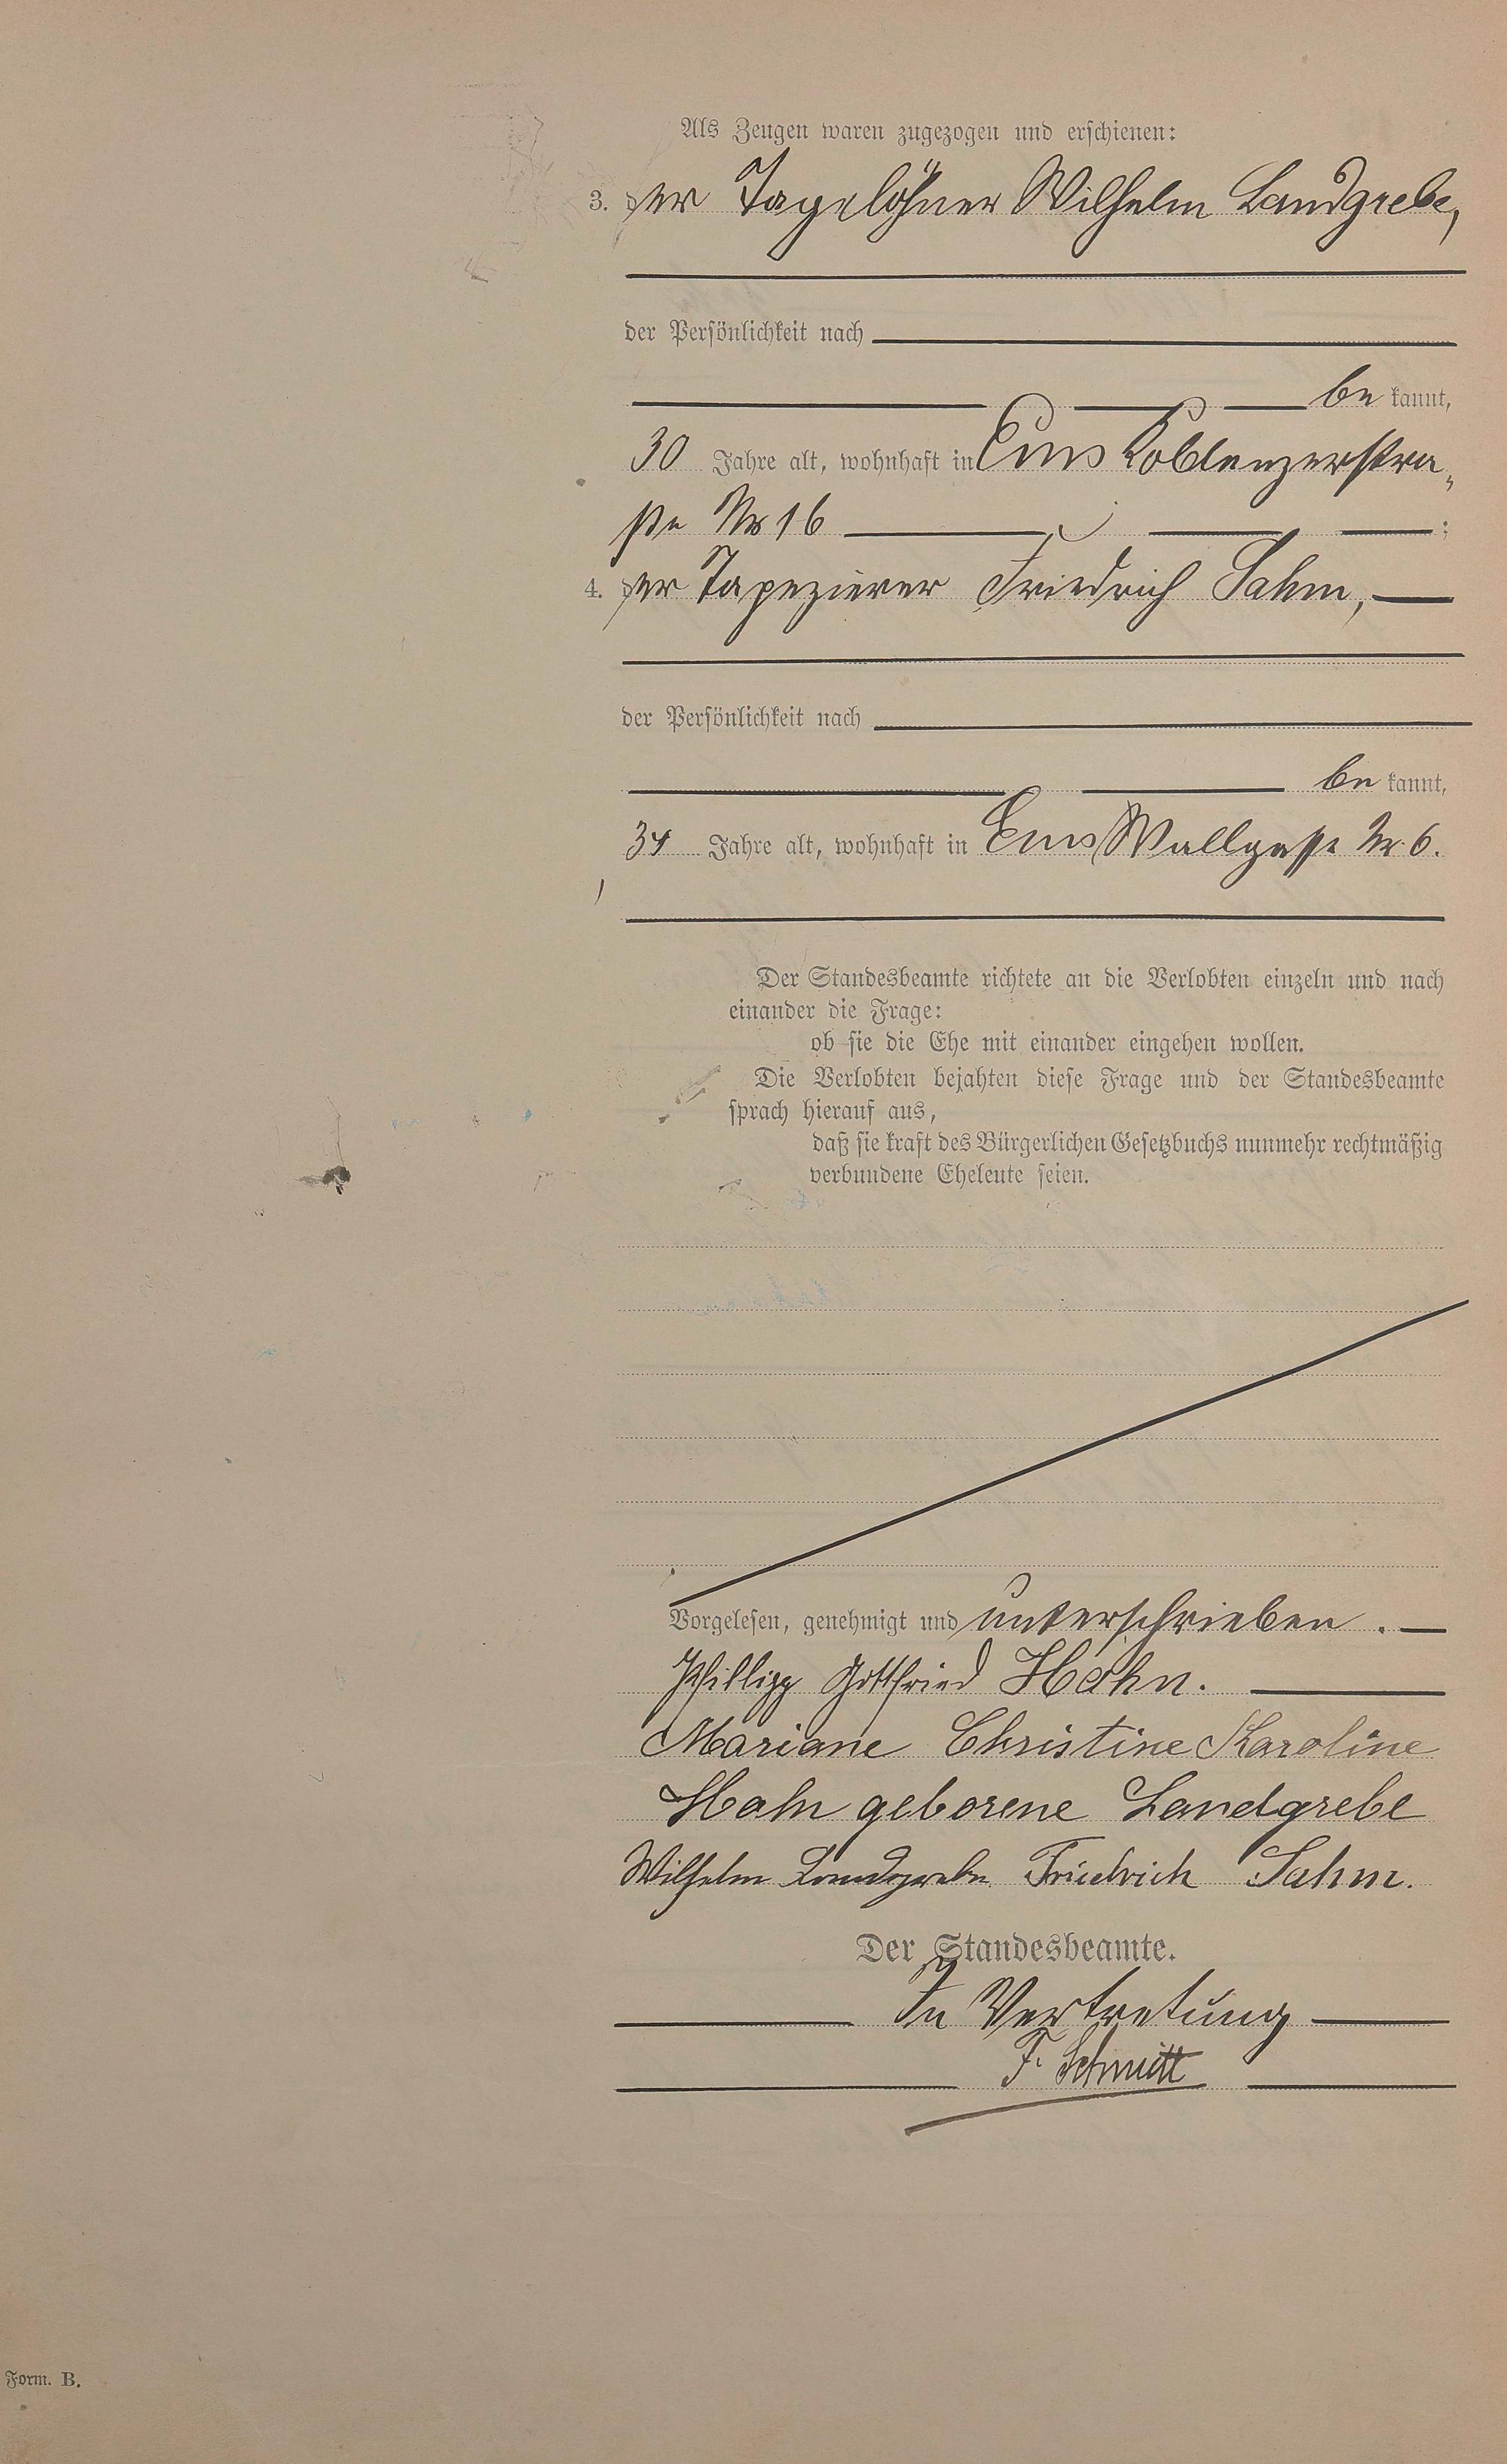 Als Zeugen waren zugezogen und erschienen:
3. der Tagelöhner Wilhelm Landgrebe,
der Persönlichkeit nach
be kannt,
30 Jahre alt, wohnhaft in Ems Koblenzerstra-
ße Nr 16 ;
4. der Tapezierer Friedrich Sahm,
der Persönlichkeit nach
be kannt,
34 Jahre alt, wohnhaft in Ems Wallgasse Nr. 6.
Der Standesbeamte richtete an die Verlobten einzeln und nach
einander die Frage:
ob sie die Ehe mit einander eingehen wollen.
Die Verlobten bejahten diese Frage und der Standesbeamte
sprach hierauf aus,
daß sie kraft des Bürgerlichen Gesetzbuchs nunmehr rechtmäßig
verbundene Eheleute seien.
Vorgelesen, genehmigt und unterschrieben.
Phillipp Gottfried Hahn.
Mariane Christine Karoline
Hahn geborene Landgrebe
Wilhelm Landgrebe Friedrich Sahm.
Der Standesbeamte.
In Vertretung
F. Schmitt
Form. B.